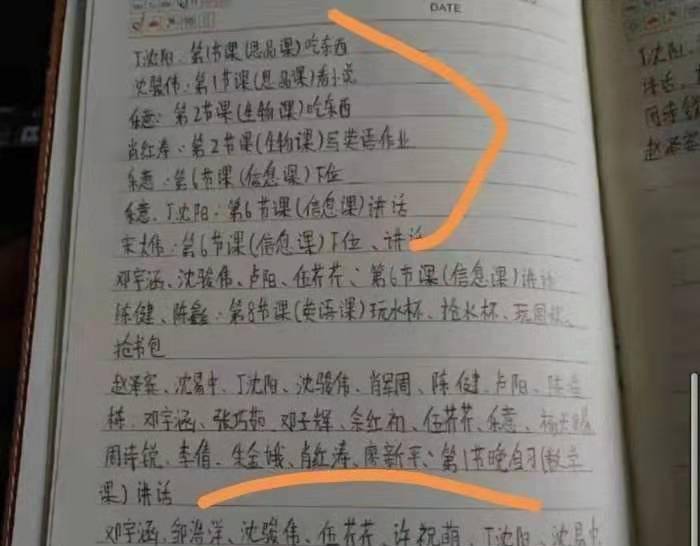 DATE
丁沈阳：第1节课(思品课)吃东西
沈骏伟：第1节课(思品课)看小说
乐意：第2节课(生物课)吃东西
肖红涛：第2节课(生物课)写英语作业
乐意：第6节课(信息课)下位
乐意、丁沈阳：第6节课(信息课)讲话
宋大伟：第6节课(信息课)下位、讲话
邓宇涵、沈骏伟、卢阳、伍芹芹：第6节课(信息课)讲话
陈健、陈鑫：第8节课(英语课)玩水杯、抢水杯、玩圆规、
抢书包
赵泽宾、沈易中、丁沈阳、沈骏伟、肖军周、陈健、卢阳、陈
栋、邓宇涵、张巧茹、邓子辉、余红初、伍芹芹、乐意、
周诗锐、李倩、朱金娥、肖红涛、廖新平：第1节晚自习(数学
课)讲话
邓宇涵、邹浩洋、沈骏伟、伍芹芹、许祝萌、丁沈阳、沈易中
丁沈阳
讲话
周诗
赵泽宾